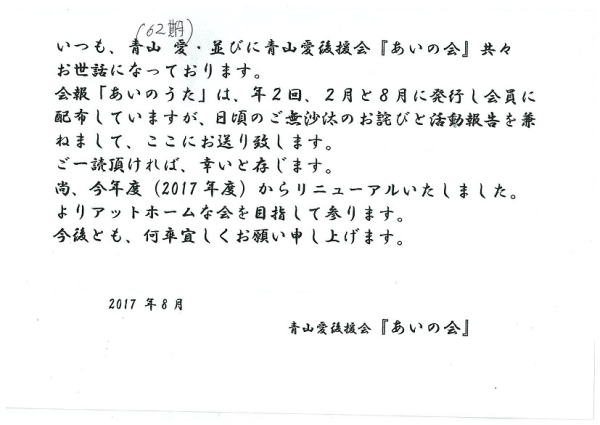 (62期)
いつも、青山 愛・並びに青山愛後援会『あいの会』共々
お世話になっております。
会報「あいのうた」は、年2回、2月と8月に発行し会員に
配布していますが、日頃のご無沙汰のお詫びと活動報告を兼
ねまして、ここにお送り致します。
ご一読頂ければ、幸いと存じます。
尚、今年度（2017年度）からリニューアルいたしました。
よりアットホームな会を目指して参ります。
今後とも、何卒宜しくお願い申し上げます。
2017 年8月
青山愛後援会『あいの会』